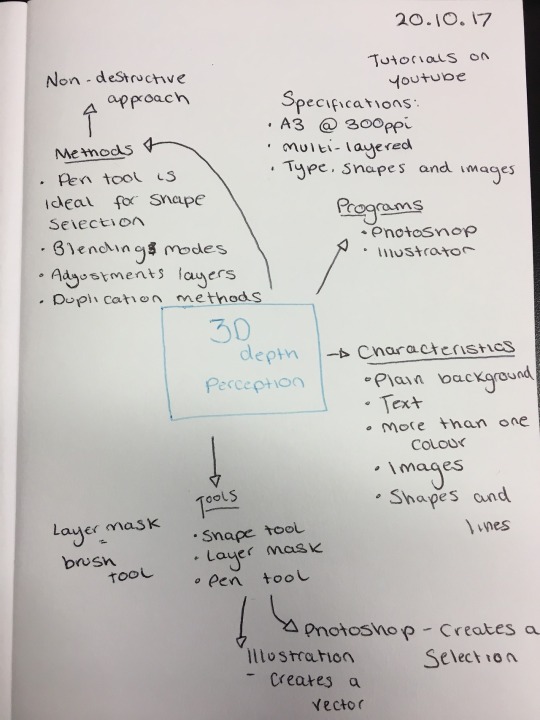 20.10.17
Tutorials on
youtube
Non-destructive
approach
Specifications:
• A3 @ 300ppi
• multi-layered
• Type, shapes and images
Methods
• Pen tool is
ideal for shape
selection
• Blendings modes
• Adjustments layers
• Duplication methods
Programs
• Photoshop
• Illustrator
3D
depth
Perception
Characteristics
• Plain background
• Text
• more than one
colour
• Images
• Shapes and
lines
Tools
• Shape tool
• Layer mask
• Pen tool
Layer mask
=
brush
tool
Photoshop - Creates a
Selection
Illustration
- Creates a
vector